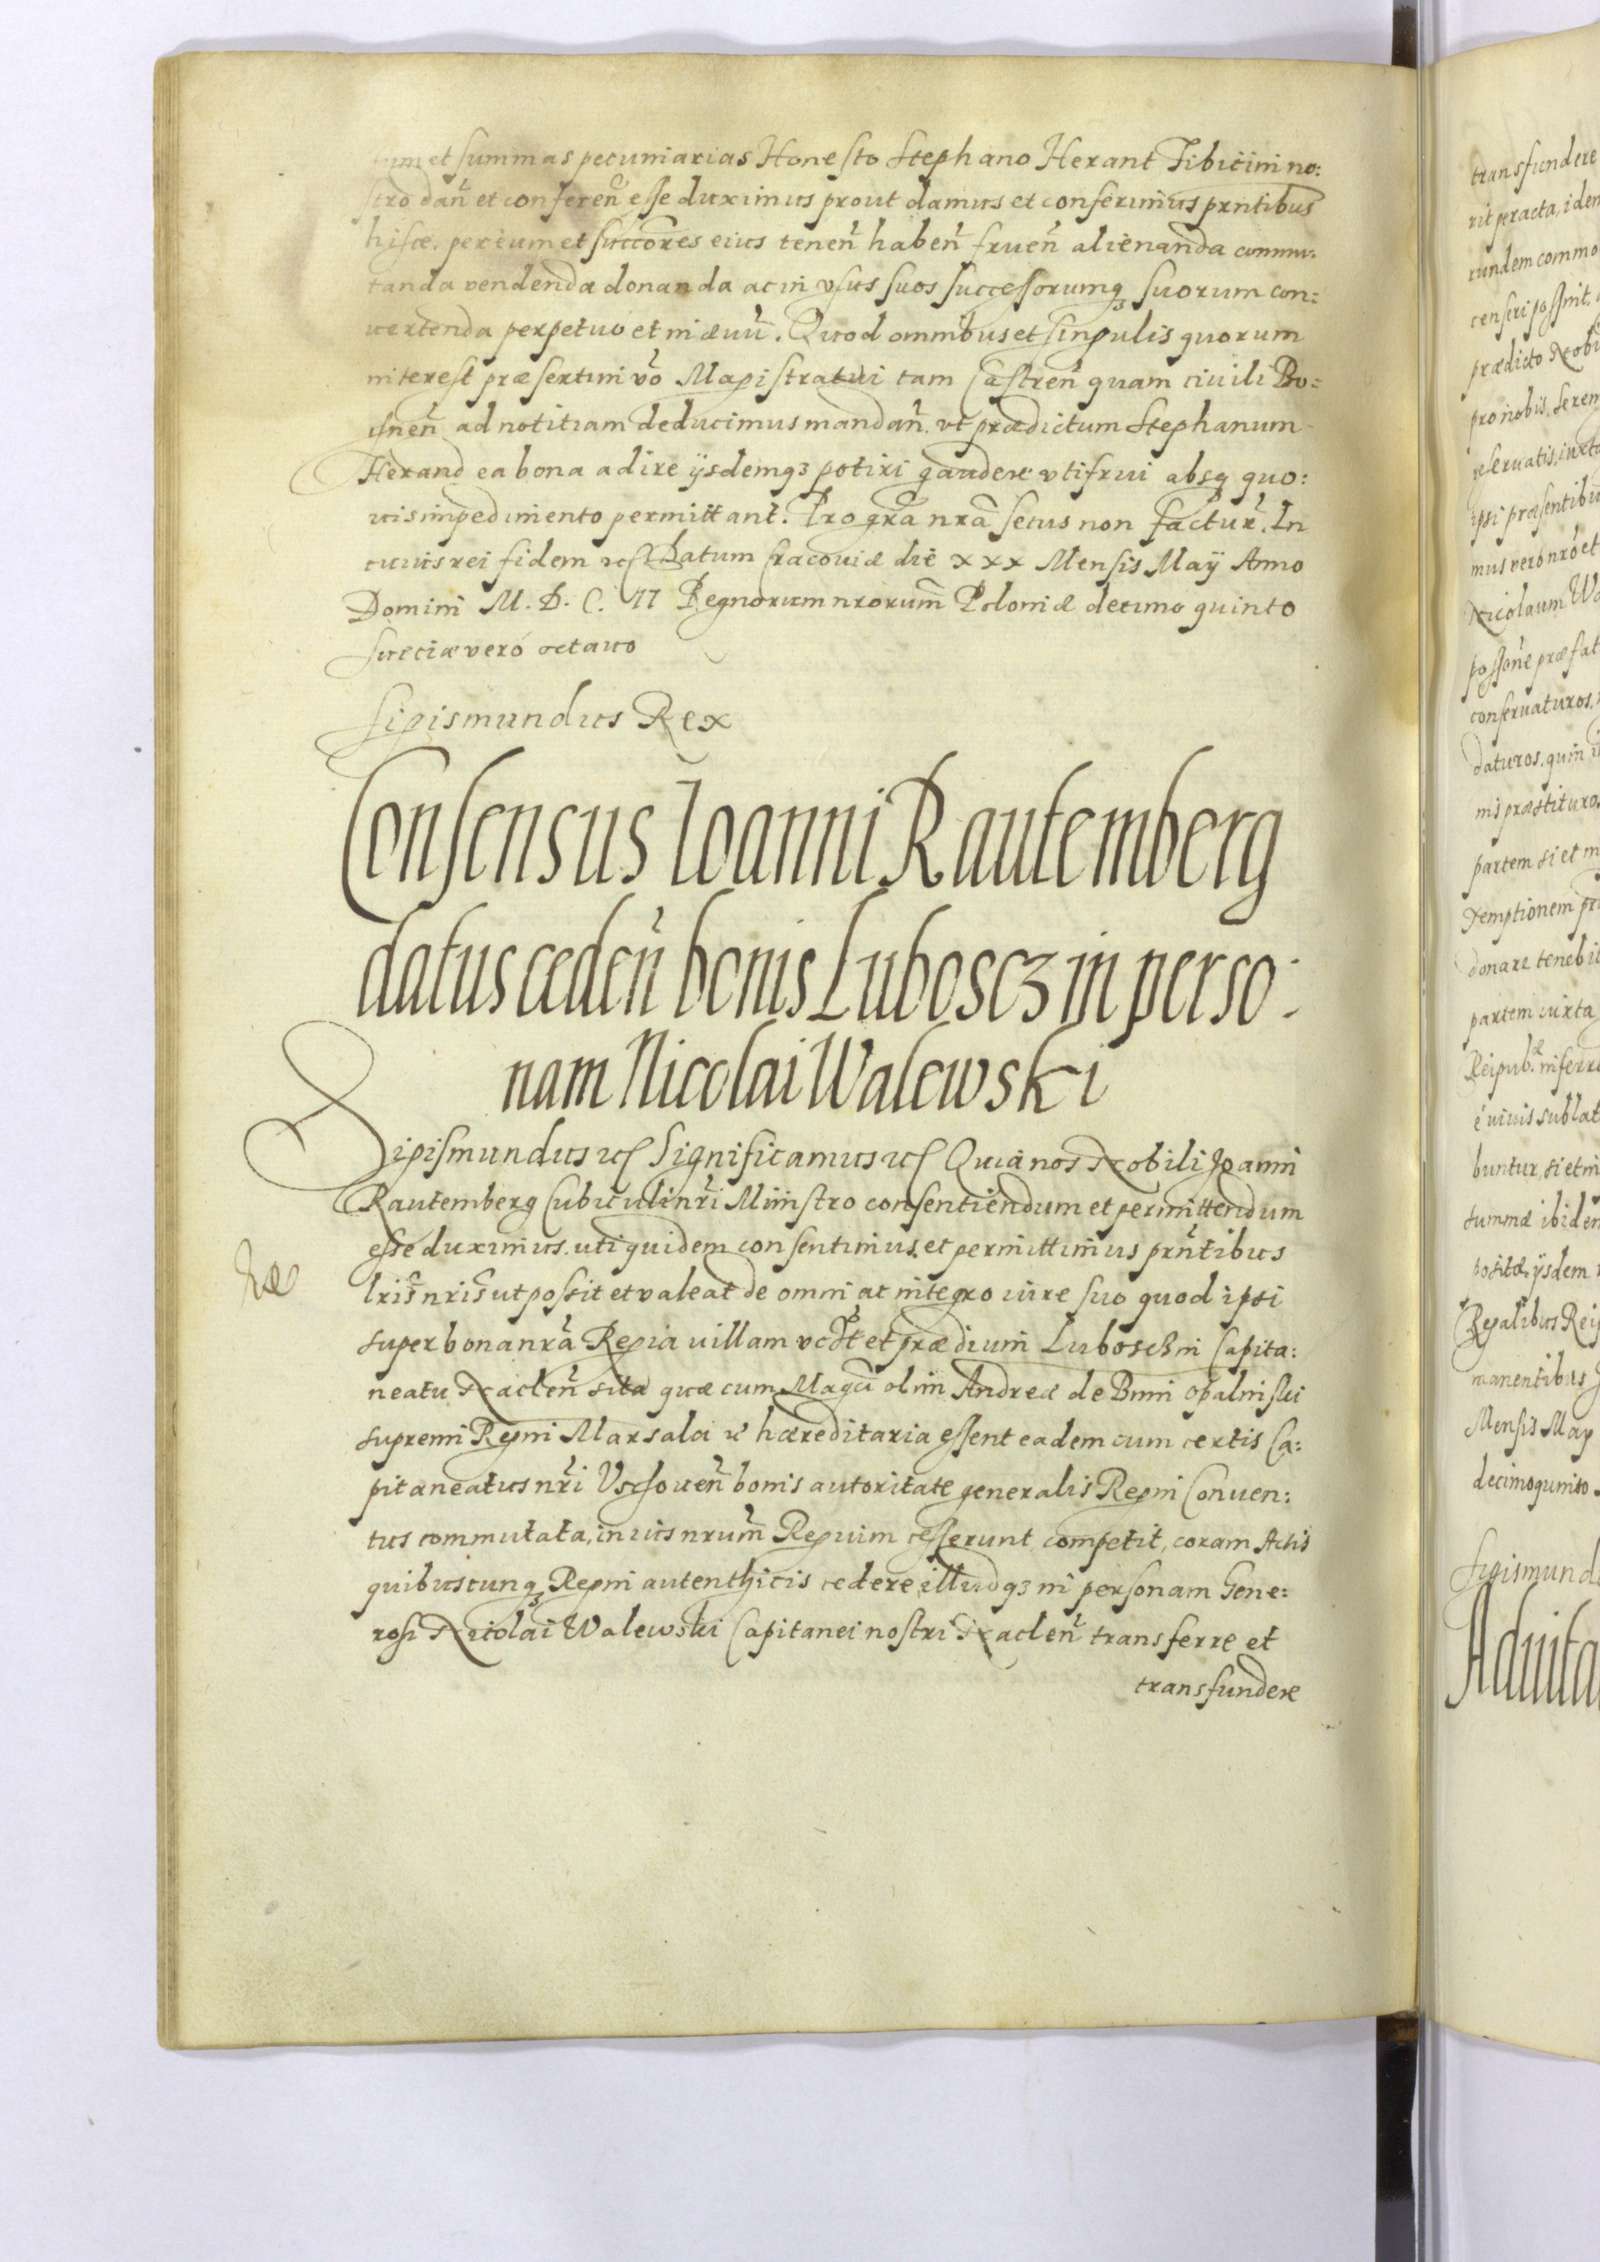 et summas pecuniarias Honesto Stephano Herant Tibicini no:
stro dañ et confereñ esse duximus prout damus et conferimus prntibus
hisce. per eum et succores eius teneñ habeñ frueñ alienanda commu:
tanda vendenda donanda ac in vsus suos successorumqʒ suorum con:
uertenda perpetuo et in æuū. Quod omnibus et singulis quorum
interest præsertim vō Magistratui tam Castreñ quam ciuili Bo:
 ad notitiam deducimus mandañ. vt prædictum Stephanum
Herand ea bona adire ijsdemqʒ potiri gaudere vti frui absqʒ quo:
uis impedimento permittant. Pro gra nra secus non factur. In
cuius rei fidem Datum Cracouiæ die XXX Mensis Maij Anno
Domini M. D. C. II Regnorum nrorum Poloniæ decimo quinto
Sueciæ vero octauo
Sigismundus Rex
Consensus Ioanni Rautemberg
datus cedeñ bonis Lubosecz in perso:
nam Nicolai Walewski
Sigismundus Significamus Quia nos Nobili Joanni
Rautemberg Cubiculi nri Ministro consentiendum et permittendum
esse duximus. uti quidem consentimus et permittimus prntibus
lris nris ut possit et valeat de omni ac integro iure suo quod ipsi
super bona nra Regia uillam et prædium in Capita:
neatu Nacleñ sita quæ cum olim Andreæ de Bnin Opalinski
supremi Regni Marsalci hæreditaria essent eadem cum certis Ca:
pitaneatus nri bonis autoritate generalis Regni Conuen:
tus commutata, in ius nrum Regium cesserunt competit, coram Actis
quibuscunqʒ Regni autenthicis cedere illudqʒ in personam Gene:
rosi Nicolai Walewski Capitanei nostri Nacleñ transferre et
transfundere
transfundere
rit peracta, idem
rundem commo
censeri possint.
prædicto Nobi
pro nobis, seren
reseruatis, iuxta
ipsi præsentibu
mus vero nro et
Nicolaum Wa
possone præfat
conseruaturos,
daturos. quin i
nis præstituros
partem si et in
xemptionem pr
donare tenebit
partem iuxta
Reipub. inferre
é viuis sublat
buntur. si et in
summæ ibidem
positæ, ijsdem
Regalibus Reip
manentibus
Mensis May
decimoquinto
Sigismund
Aduita